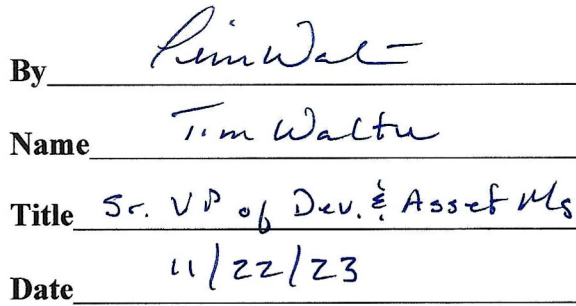 By Tim Walt
Name Tim Walter
Title Sr. VP of Dev. & Asset Mg
Date 11/22/23